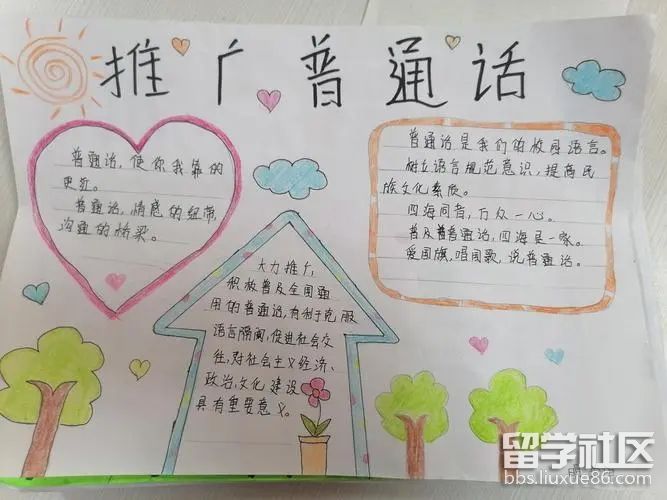 推广普通话
普通话，使你我靠的
更近。
普通话，情感的纽带，
沟通的桥梁。
大力推广，
积极普及全国通
用的普通话，有利于克服
语言隔阂，促进社会交
往，对社会主义经济、
政治，文化建设
具有重要意义。
普通话是我们的校园语言。
树立语言规范意识，提高民
族文化素质。
四海同音，万众一心。
普及普通话，四海是一家。
爱国旗，唱国歌，说普通话。
留学社区
bbs.liuxue86.com